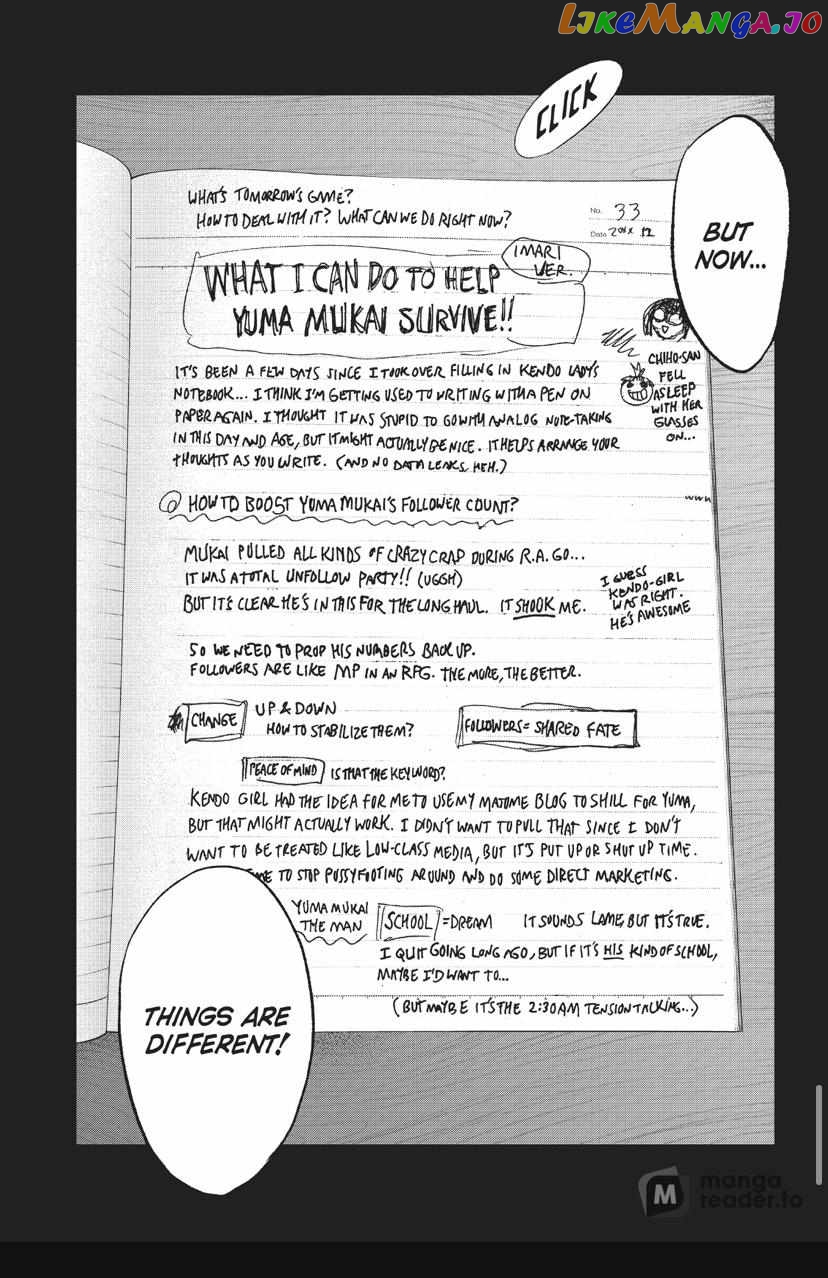 LIKEMANGA.IO
CLICK
BUT
NOW...
WHAT'S TOMORROW'S GAME?
HOW TO DEAL WITH IT? WHAT CAN WE DO RIGHT NOW?
No. 33
Date 201X 12
IMARI
VER.
WHAT I CAN DO TO HELP
YUMA MUKAI SURVIVE!!
CHIHO-SAN
FELL
ASLEEP
WITH HER
GLASSES
ON...
IT'S BEEN A FEW DAYS SINCE I TOOK OVER FILLING IN KENDO LADY'S
NOTEBOOK... I THINK I'M GETTING USED TO WRITING WITH A PEN ON
PAPER AGAIN. I THOUGHT IT WAS STUPID TO GO WITH ANALOG NOTE-TAKING
IN THIS DAY AND AGE, BUT IT MIGHT ACTUALLY BE NICE. IT HELPS ARRANGE YOUR
THOUGHTS AS YOU WRITE. (AND NO DATA LEAKS, HEH.)
HOW TO BOOST YUMA MUKAI'S FOLLOWER COUNT?
MUKAI PULLED ALL KINDS OF CRAZY CRAP DURING R.A. GO...
IT WAS A TOTAL UNFOLLOW PARTY!! (UGGH)
BUT IT'S CLEAR HE'S IN THIS FOR THE LONG HAUL. IT SHOOK ME.
I GUESS
KENDO-GIRL
WAS RIGHT.
HE'S AWESOME
SO WE NEED TO PROP HIS NUMBERS BACK UP.
FOLLOWERS ARE LIKE MP IN AN RPG. THE MORE, THE BETTER.
CHANGE UP & DOWN
HOW TO STABILIZE THEM?
FOLLOWERS = SHARED FATE
PEACE OF MIND IS THAT THE KEYWORD?
KENDO GIRL HAD THE IDEA FOR ME TO USE MY MATOME BLOG TO SHILL FOR YUMA,
BUT THAT MIGHT ACTUALLY WORK. I DIDN'T WANT TO PULL THAT SINCE I DON'T
WANT TO BE TREATED LIKE LOW-CLASS MEDIA, BUT IT'S PUT UP OR SHUT UP TIME.
TO STOP PUSSYFOOTING AROUND AND DO SOME DIRECT MARKETING.
YUMA MUKAI
THE MAN
SCHOOL = DREAM IT SOUNDS LAME, BUT IT'S TRUE.
I QUIT GOING LONG AGO, BUT IF IT'S HIS KIND OF SCHOOL,
MAYBE I'D WANT TO...
(BUT MAYBE IT'S THE 2:30 AM TENSION TALKING...)
THINGS ARE
DIFFERENT!
M manga
reader.to